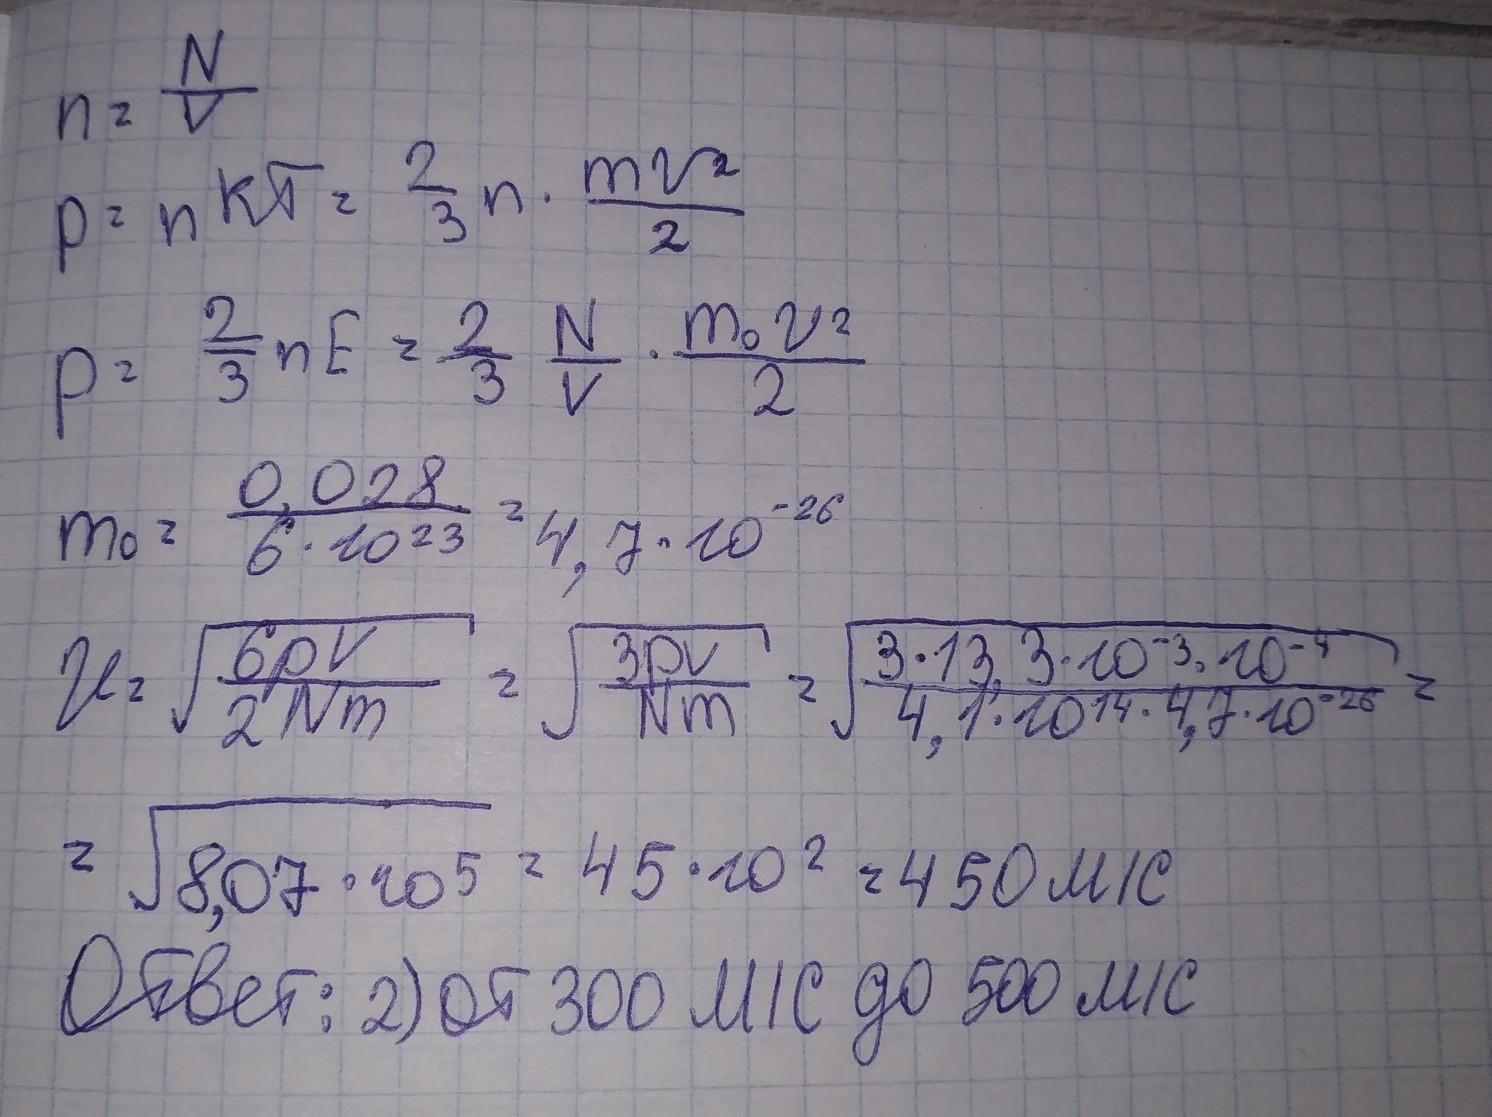 n = N/V
p = nkT = 2/3 n · mv²/2
p = 2/3 nE = 2/3 N/V · m₀v²/2
m₀ = 0,028/6·10²³ = 4,7·10⁻²⁶
v = √(6pV/2Nm) = √(3pv/Nm) = √(3·13,3·10⁻³·10⁻⁴/4,1·10¹⁴·4,7·10⁻²⁶) =
= √(8,07·10⁵) = 45·10² = 450 м/с
Ответ: 2) от 300 м/с до 500 м/с